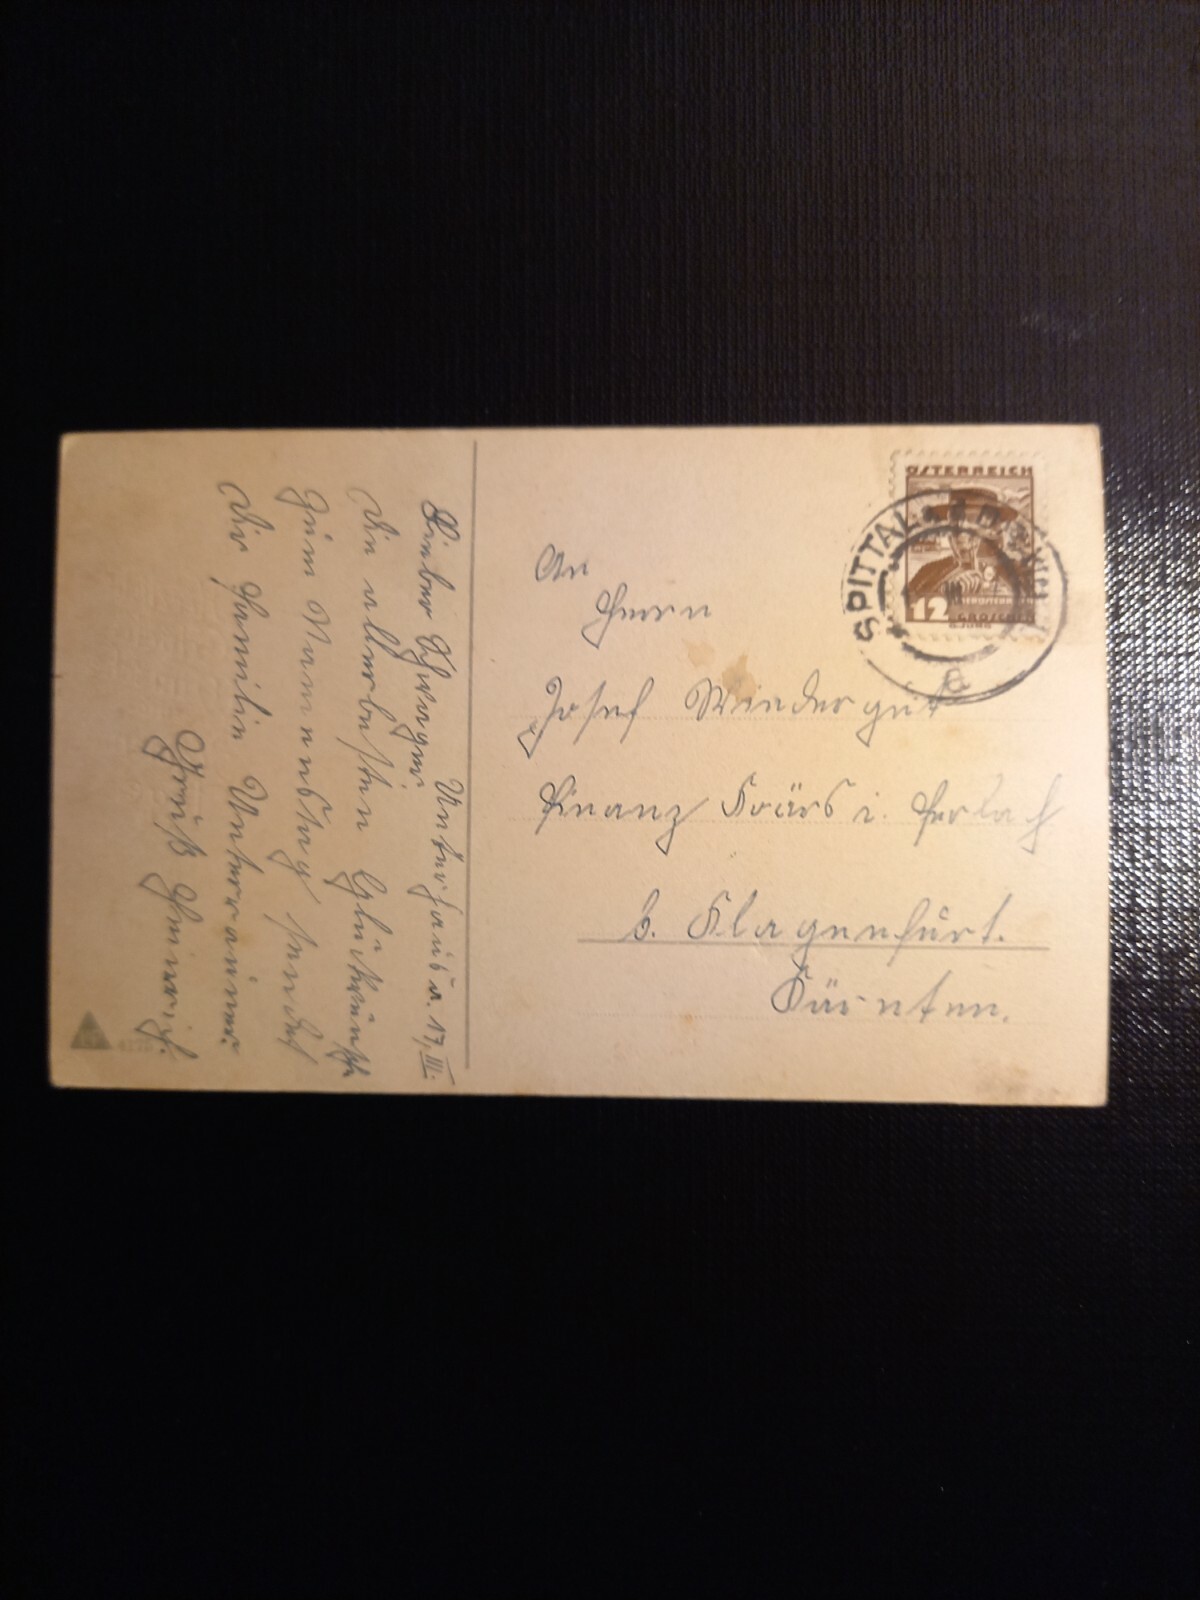 Unterhaus a. 17. III.
Lieber Schwager
Die allerbesten Glückwünsche
zum Namenstag sendet
Dir Familie Unterrainer.
Gruß Heinrich.
An
Herrn
Josef Wundergut
Finanz i. Ferlach
b. Klagenfurt.
Kärnten.
ÖSTERREICH
12
GROSCHEN
SPITTAL
a